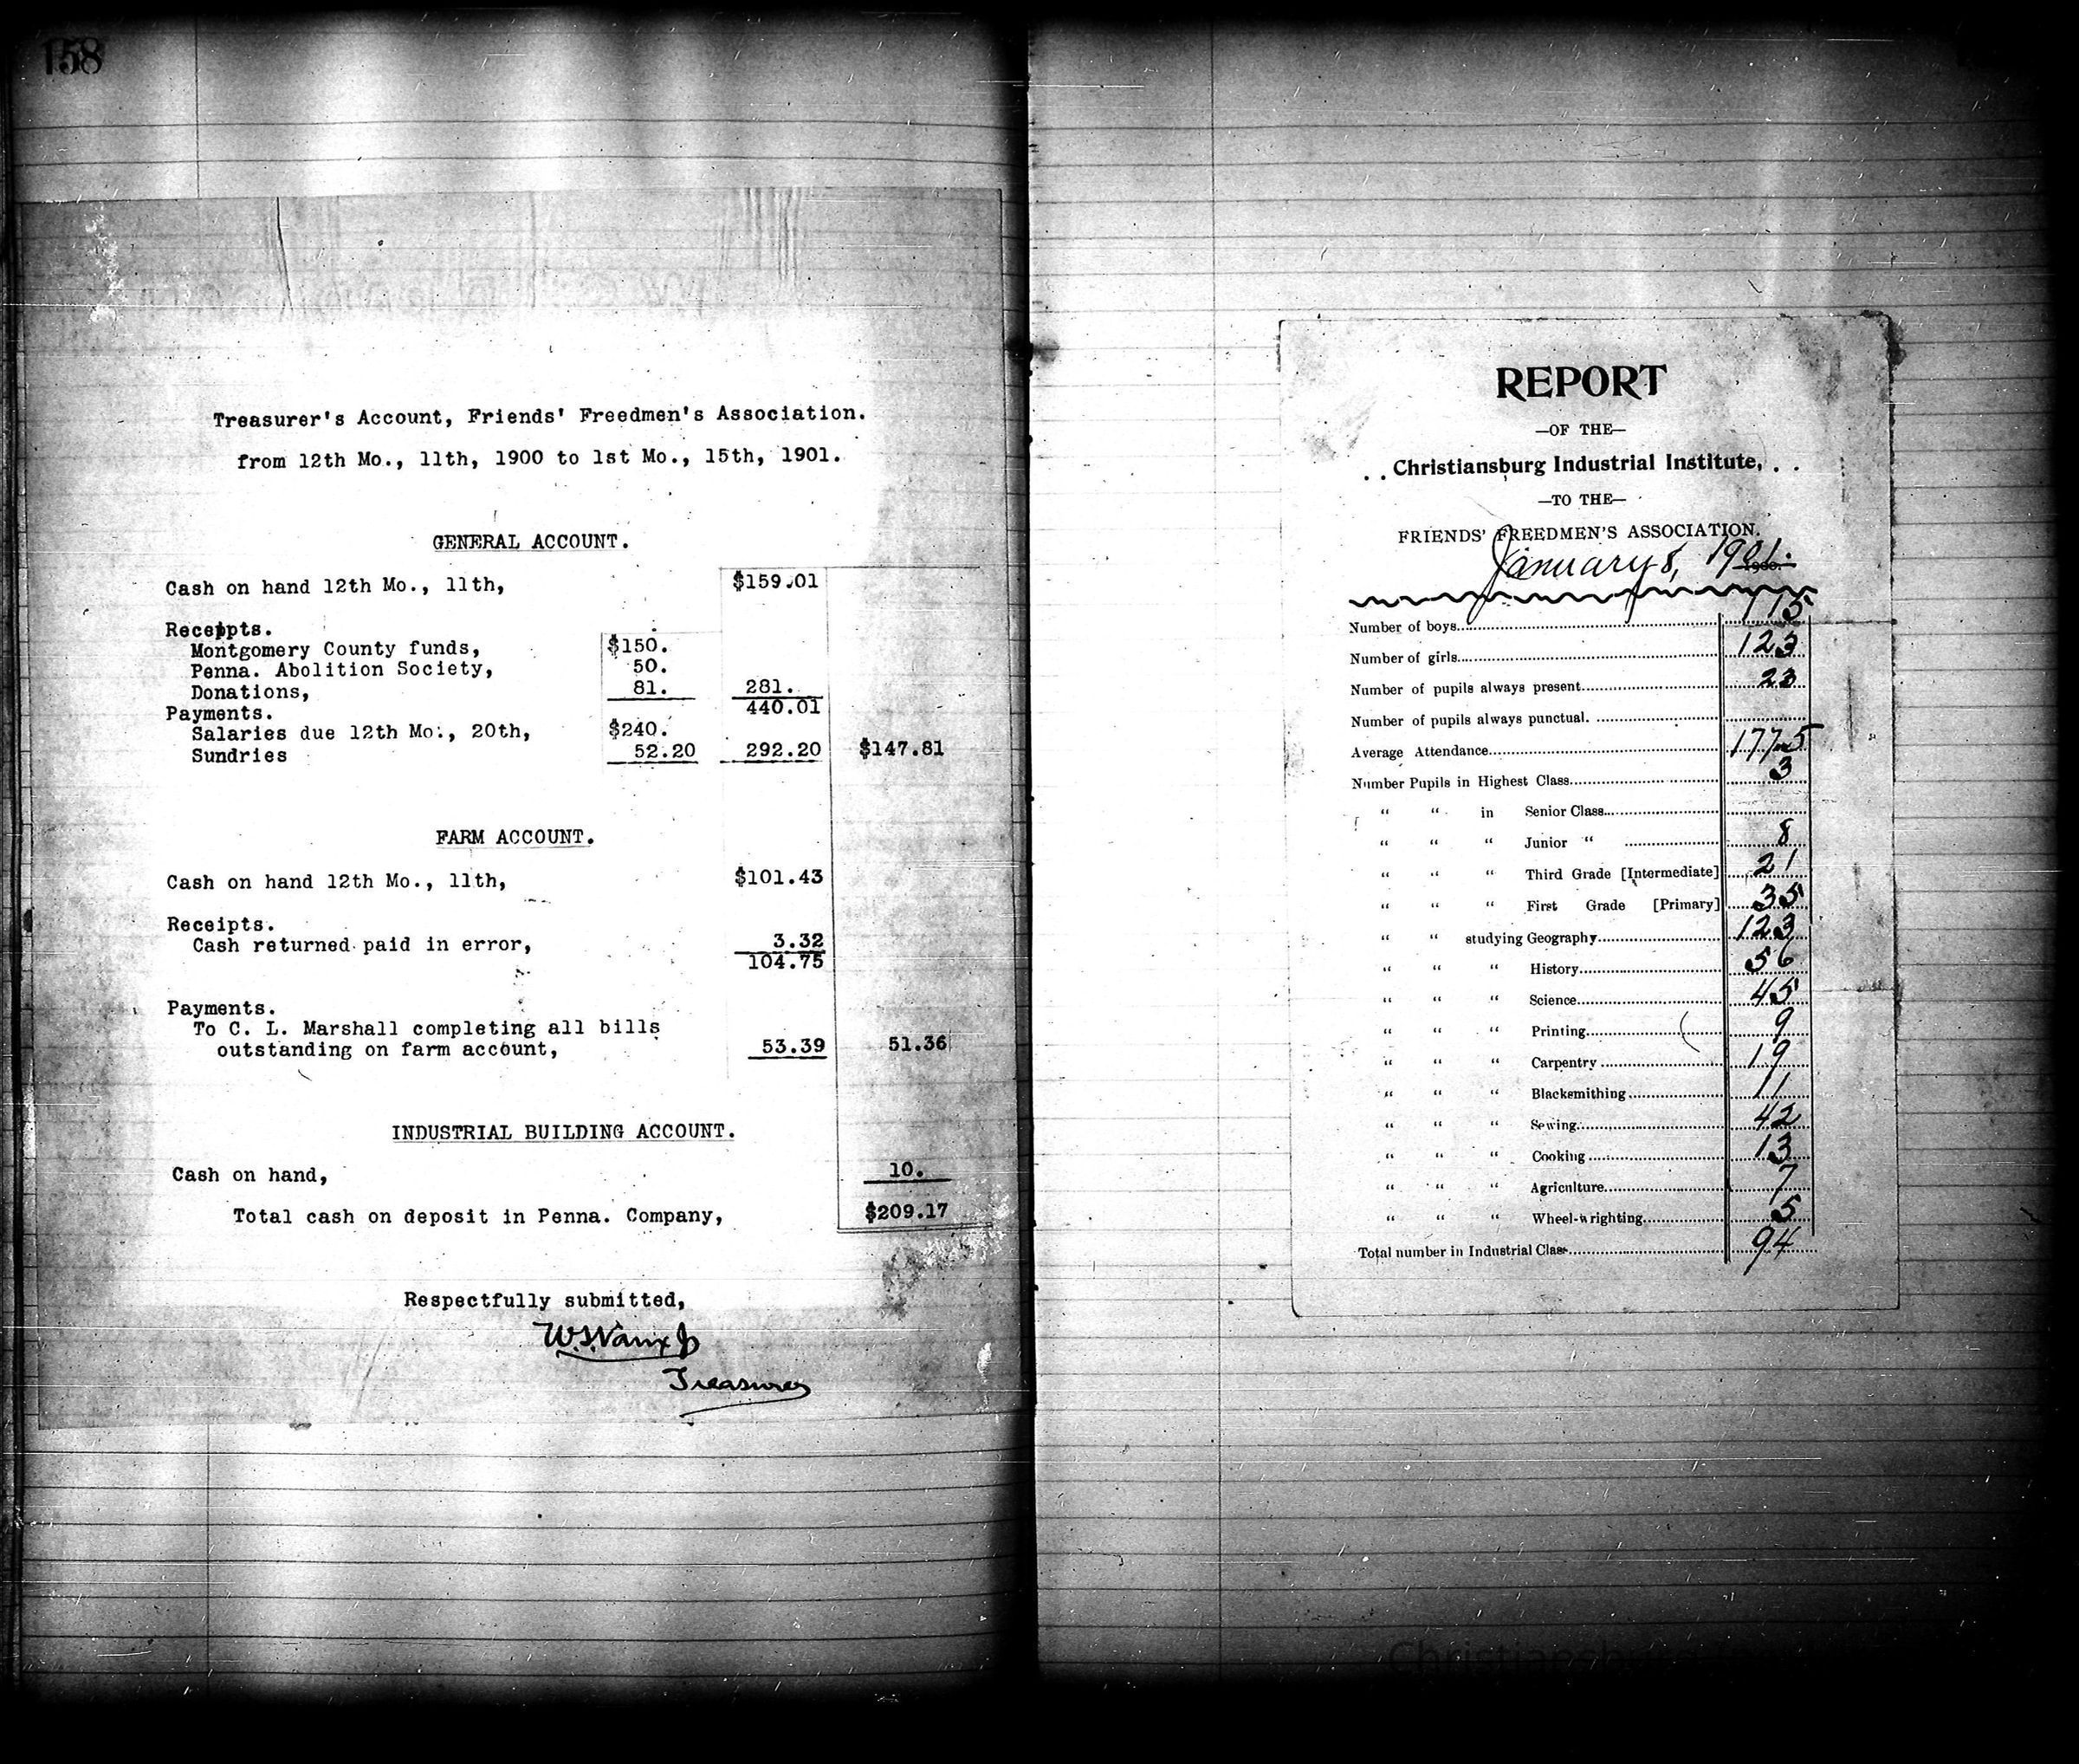 158
Treasurer's Account, Friends' Freedmen's Association.
from 12th Mo., 11th, 1900 to 1st Mo., 15th, 1901.
GENERAL ACCOUNT.
Cash on hand 12th Mo., 11th, $159.01
Receipts.
Montgomery County funds, $150.
Penna. Abolition Society, 50.
Donations, 81. 281.
440.01
Payments.
Salaries due 12th Mo., 20th, $240.
Sundries 52.20 292.20 $147.81
FARM ACCOUNT.
Cash on hand 12th Mo., 11th, $101.43
Receipts.
Cash returned paid in error, 3.32
104.75
Payments.
To C. L. Marshall completing all bills
outstanding on farm account, 53.39 51.36
INDUSTRIAL BUILDING ACCOUNT.
Cash on hand, 10.
Total cash on deposit in Penna. Company, $209.17
Respectfully submitted,
W.S. Vaux Jr
Treasurer
REPORT
—OF THE—
. . Christiansburg Industrial Institute, . .
—TO THE—
FRIENDS' FREEDMEN'S ASSOCIATION.
January 8, 1901.
Number of boys 115
Number of girls 123
Number of pupils always present 23
Number of pupils always punctual.
Average Attendance 177.5
Number Pupils in Highest Class 3
“ “ in Senior Class
“ “ “ Junior “ 8
“ “ “ Third Grade [Intermediate] 21
“ “ “ First Grade [Primary] 35
“ “ studying Geography 123
“ “ “ History 56
“ “ “ Science 45
“ “ “ Printing 9
“ “ “ Carpentry 19
“ “ “ Blacksmithing 11
“ “ “ Sewing 42
“ “ “ Cooking 13
“ “ “ Agriculture 7
“ “ “ Wheel-wrighting 5
Total number in Industrial Class 94